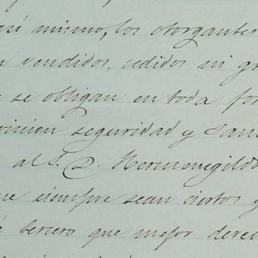 así mismo, los otorgantes
vendidos, cedidos ni gr
se obligan en toda for
seguridad y san
al S. D. Hermenegildo
siempre sean ciertos y
tercero que mejor derec